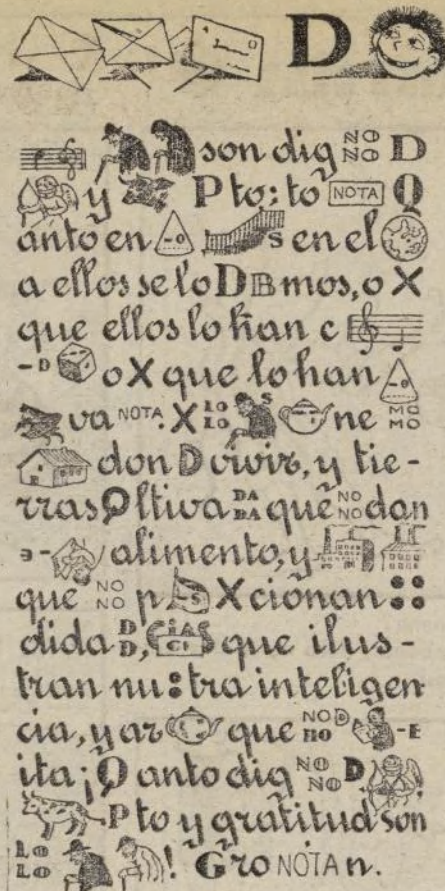 D
son dig NO NO D
y P to; to NOTA Q
anto en -O S en el
a ellos se lo D B mos, o X
que ellos lo han c
- D o X que lo han
va NOTA. X LO LO S ne MO MO
don D vivir, y tie-
rras Q ltiva DA DA que NO NO dan
alimento, y
que NO NO p S X cionan
dida D D, CIAS CI que ilus-
tran nu tra inteligen
cia, y ar que NO NO D -E
ita; Q anto dig NO NO D
P to y gratitud son
LO LO ! G ro NOTA n.